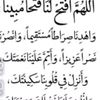 اللَّهُمَّ افْتَحْ لَنَا فَتْحًا مُبِينًا
وَاهْدِنَا صِرَاطًا مُسْتَقِيمًا وَانْصُرْنَا
نَصْرًا عَزِيزًا وَأَتِمَّ عَلَيْنَا نِعْمَتَكَ
وَأَنْزِلْ فِي قُلُوبِنَا سَكِينَتَكَ